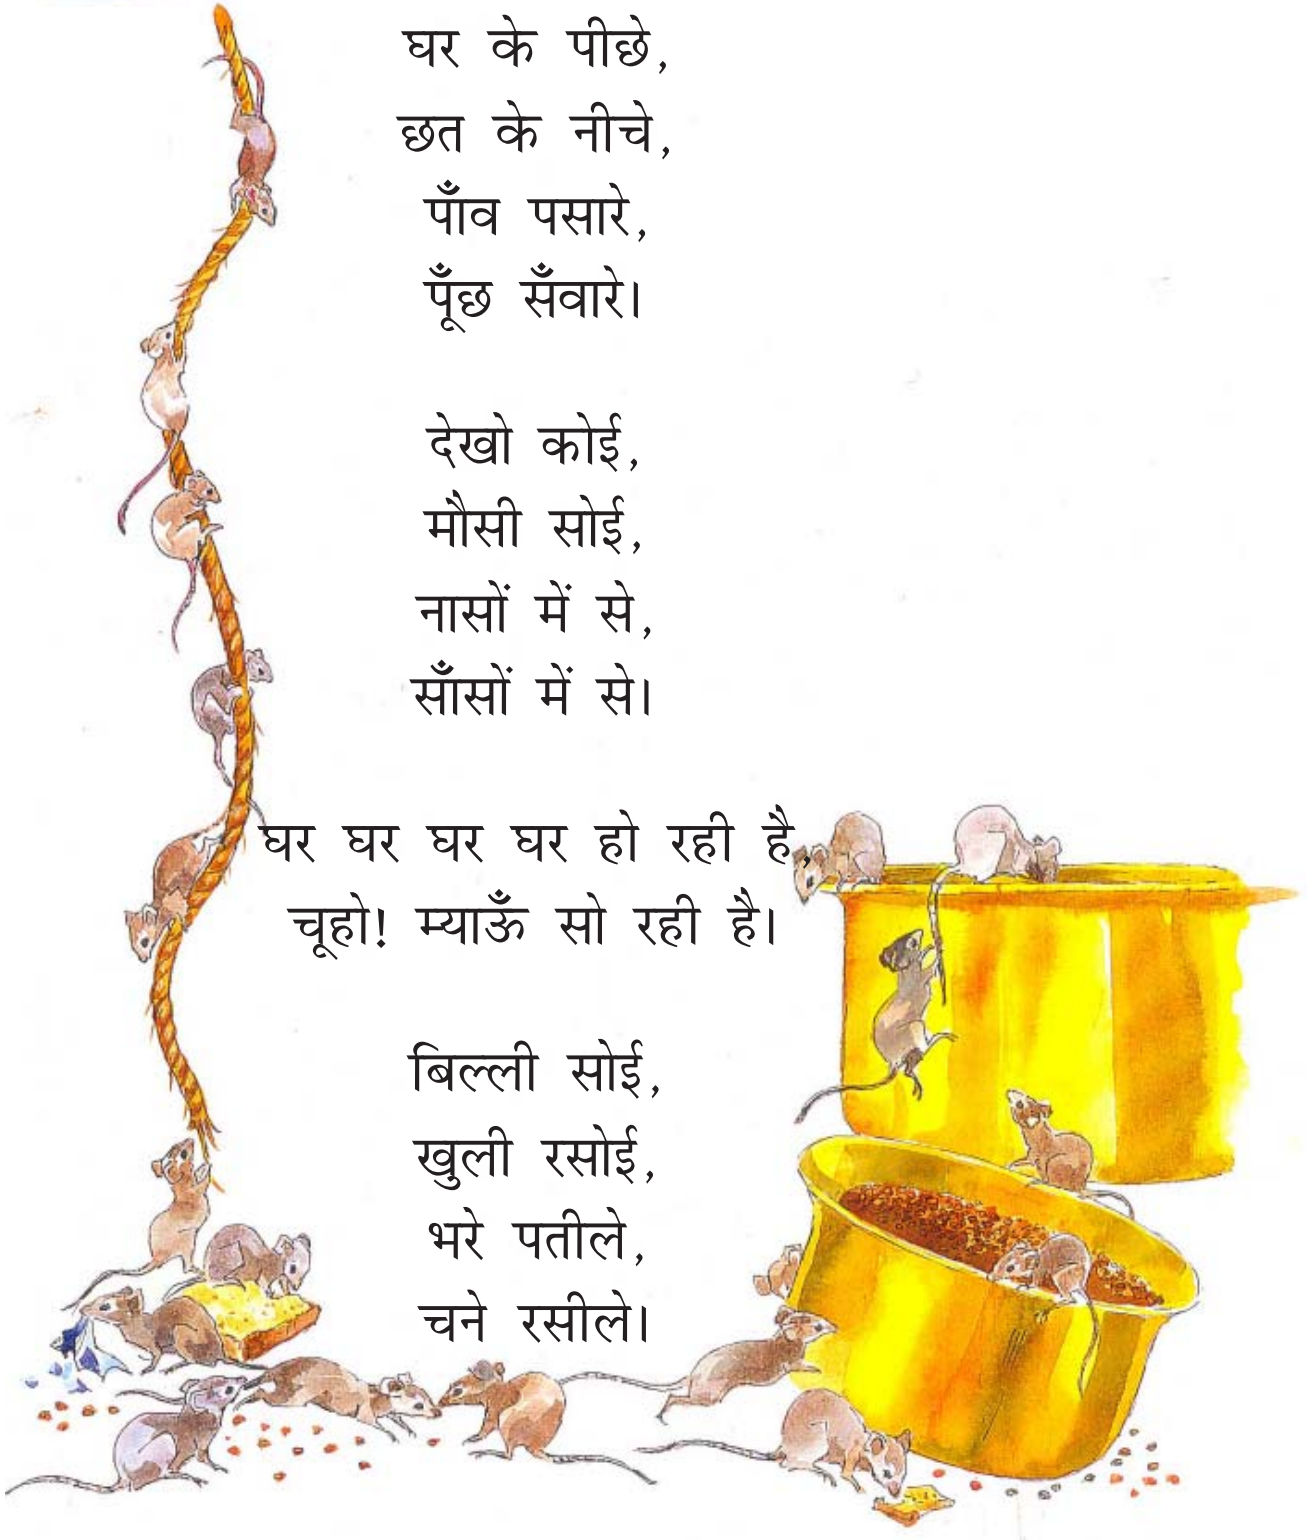 घर के पीछे,
छत के नीचे,
पाँव पसारे,
पूँछ सँवारे।
देखो कोई,
मौसी सोई,
नासों में से,
साँसों में से।
घर घर घर घर हो रही है,
चूहो! म्याऊँ सो रही है।
बिल्ली सोई,
खुली रसोई,
भरे पतीले,
चने रसीले।